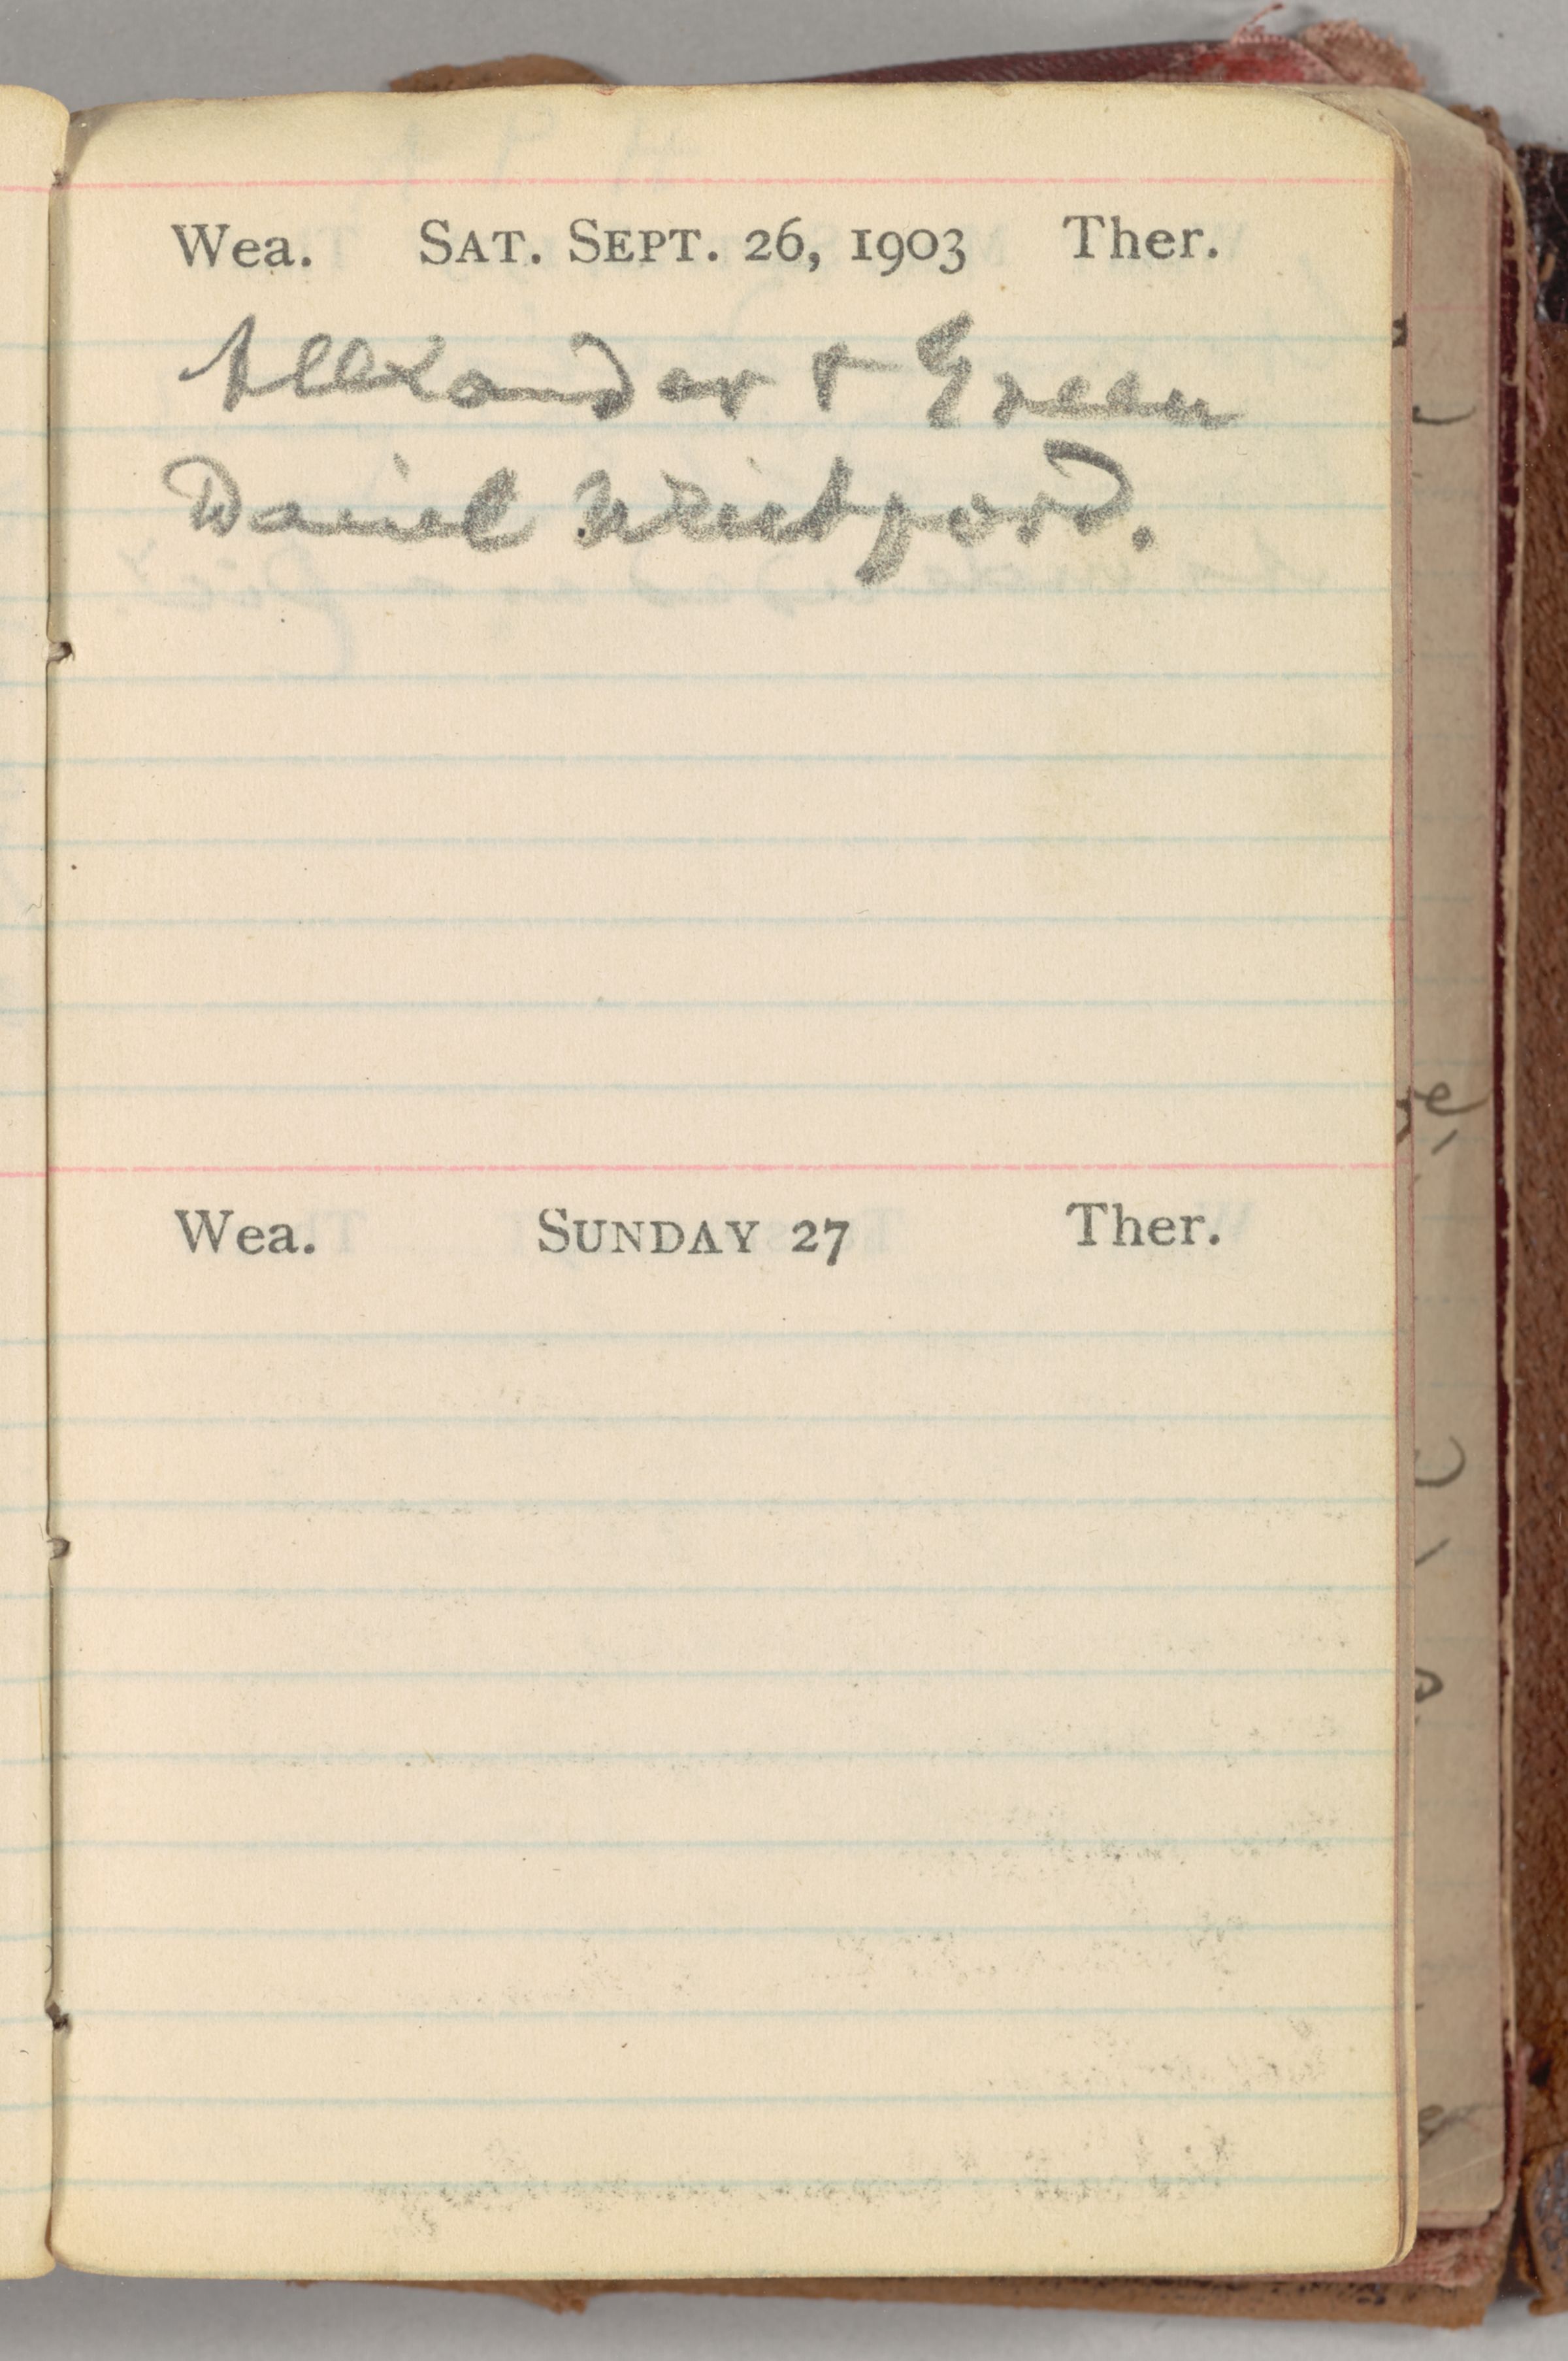 Wea. SAT. SEPT. 26, 1903 Ther.
Alexander + Green
Daniel Whitford.
Wea. SUNDAY 27 Ther.